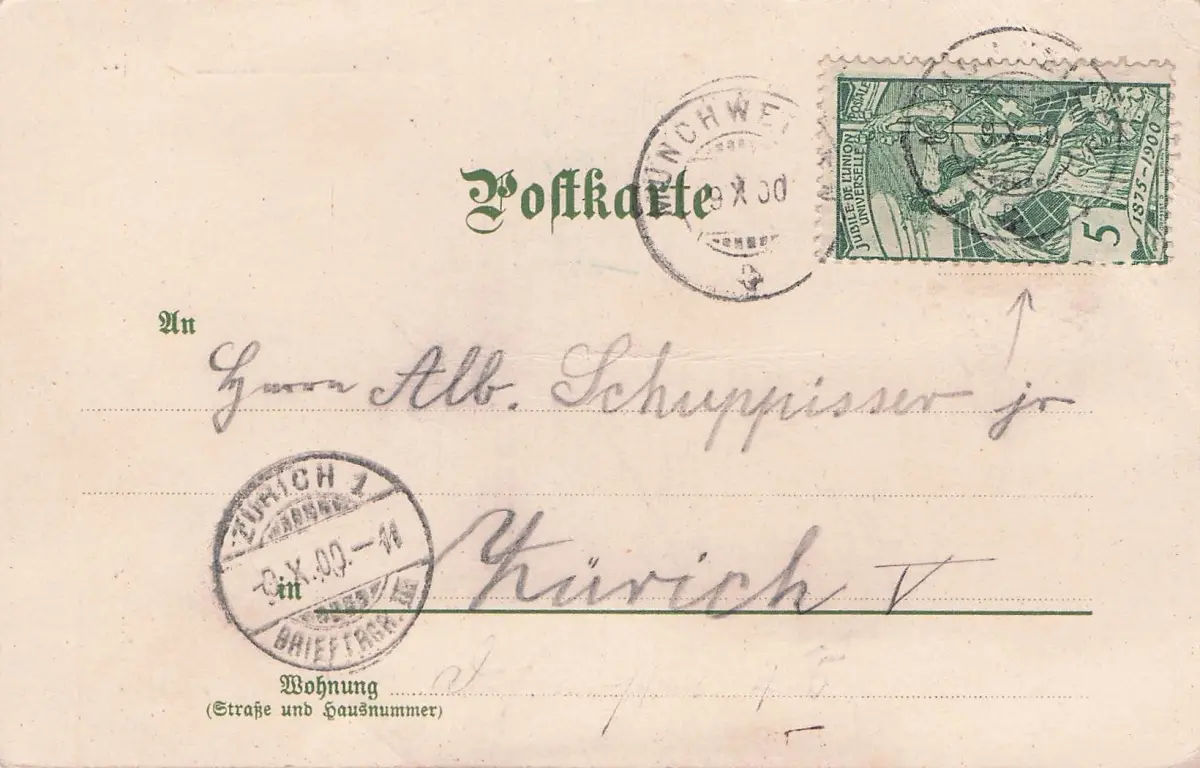 JUBILÉ DE L'UNION
POSTALE
UNIVERSELLE
1875–1900
5
9 X 00
Postkarte
An
Herrn Alb. Schuppisser jr
ZÜRICH 1
-9.X.00.-11
BRIEFTRÄG.
in
Zürich V
Wohnung
(Straße und Hausnummer)